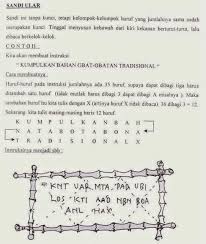 SANDI ULAR
Sandi ini tanpa kunci, tetapi kelompok-kelompok huruf yang jumlahnya sama sudah
merupakan kunci. Tinggal menyusun kebawah dari kiri kekanan berturut-turut, lalu
dibaca berkelok-kelok.
CONTOH:
Kita akan membuat instruksi
" KUMPULKAN BAHAN OBAT-OBATAN TRADISIONAL "
Cara membuatnya:
Huruf-huruf pada instruksi jumlahnya ada 35 huruf, supaya dapat dibagi tiga harus
ditambah satu huruf (tidak mutlak harus dibagi 3 dapat dibagi 4 misalnya). Maka
tambahan huruf itu kita tulis dengan X (artinya huruf X tidak dibaca) 36 dibagi 3 = 12.
Sekarang kita tulis masing-masing baris 12 huruf
K U M P U L K A N B A H
N A T A B O T A B O N A
T R A D I S I O N A L X
Instruksinya menjadi sbb :
KNT UAR MTA PAD UBI
LOS KTI AAO NBN BOA
ANL HAX